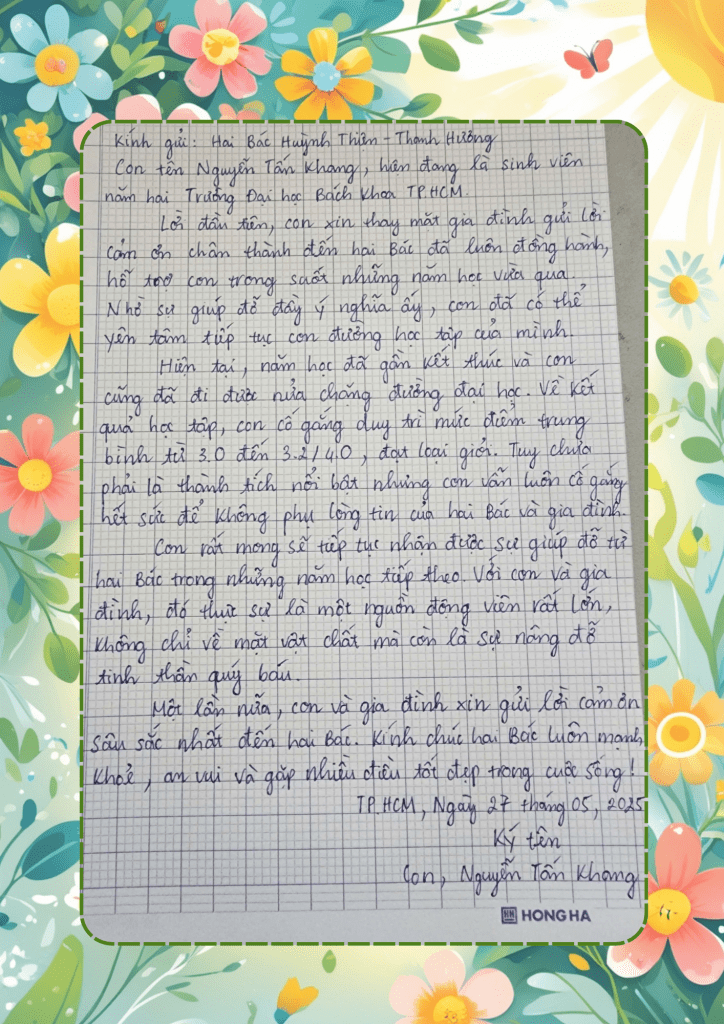 Kính gửi: Hai Bác Huỳnh Thiên - Thanh Hương
Con tên Nguyễn Tấn Khang, hiện đang là sinh viên
năm hai Trường Đại học Bách Khoa TP.HCM.
Lời đầu tiên, con xin thay mặt gia đình gửi lời
cảm ơn chân thành đến hai Bác đã luôn đồng hành,
hỗ trợ con trong suốt những năm học vừa qua.
Nhờ sự giúp đỡ đầy ý nghĩa ấy, con đã có thể
yên tâm tiếp tục con đường học tập của mình.
Hiện tại, năm học đã gần kết thúc và con
cũng đã đi được nửa chặng đường đại học. Về kết
quả học tập, con cố gắng duy trì mức điểm trung
bình từ 3.0 đến 3.2/4.0, đạt loại giỏi. Tuy chưa
phải là thành tích nổi bật nhưng con vẫn luôn cố gắng
hết sức để không phụ lòng tin của hai Bác và gia đình.
Con rất mong sẽ tiếp tục nhận được sự giúp đỡ từ
hai Bác trong những năm học tiếp theo. Với con và gia
đình, đó thực sự là một nguồn động viên rất lớn,
không chỉ về mặt vật chất mà còn là sự nâng đỡ
tinh thần quý báu.
Một lần nữa, con và gia đình xin gửi lời cảm ơn
sâu sắc nhất đến hai Bác. Kính chúc hai Bác luôn mạnh
khoẻ, an vui và gặp nhiều điều tốt đẹp trong cuộc sống!
TP.HCM, Ngày 27 tháng 05, 2025
Ký tên
Con, Nguyễn Tấn Khang
HONG HA